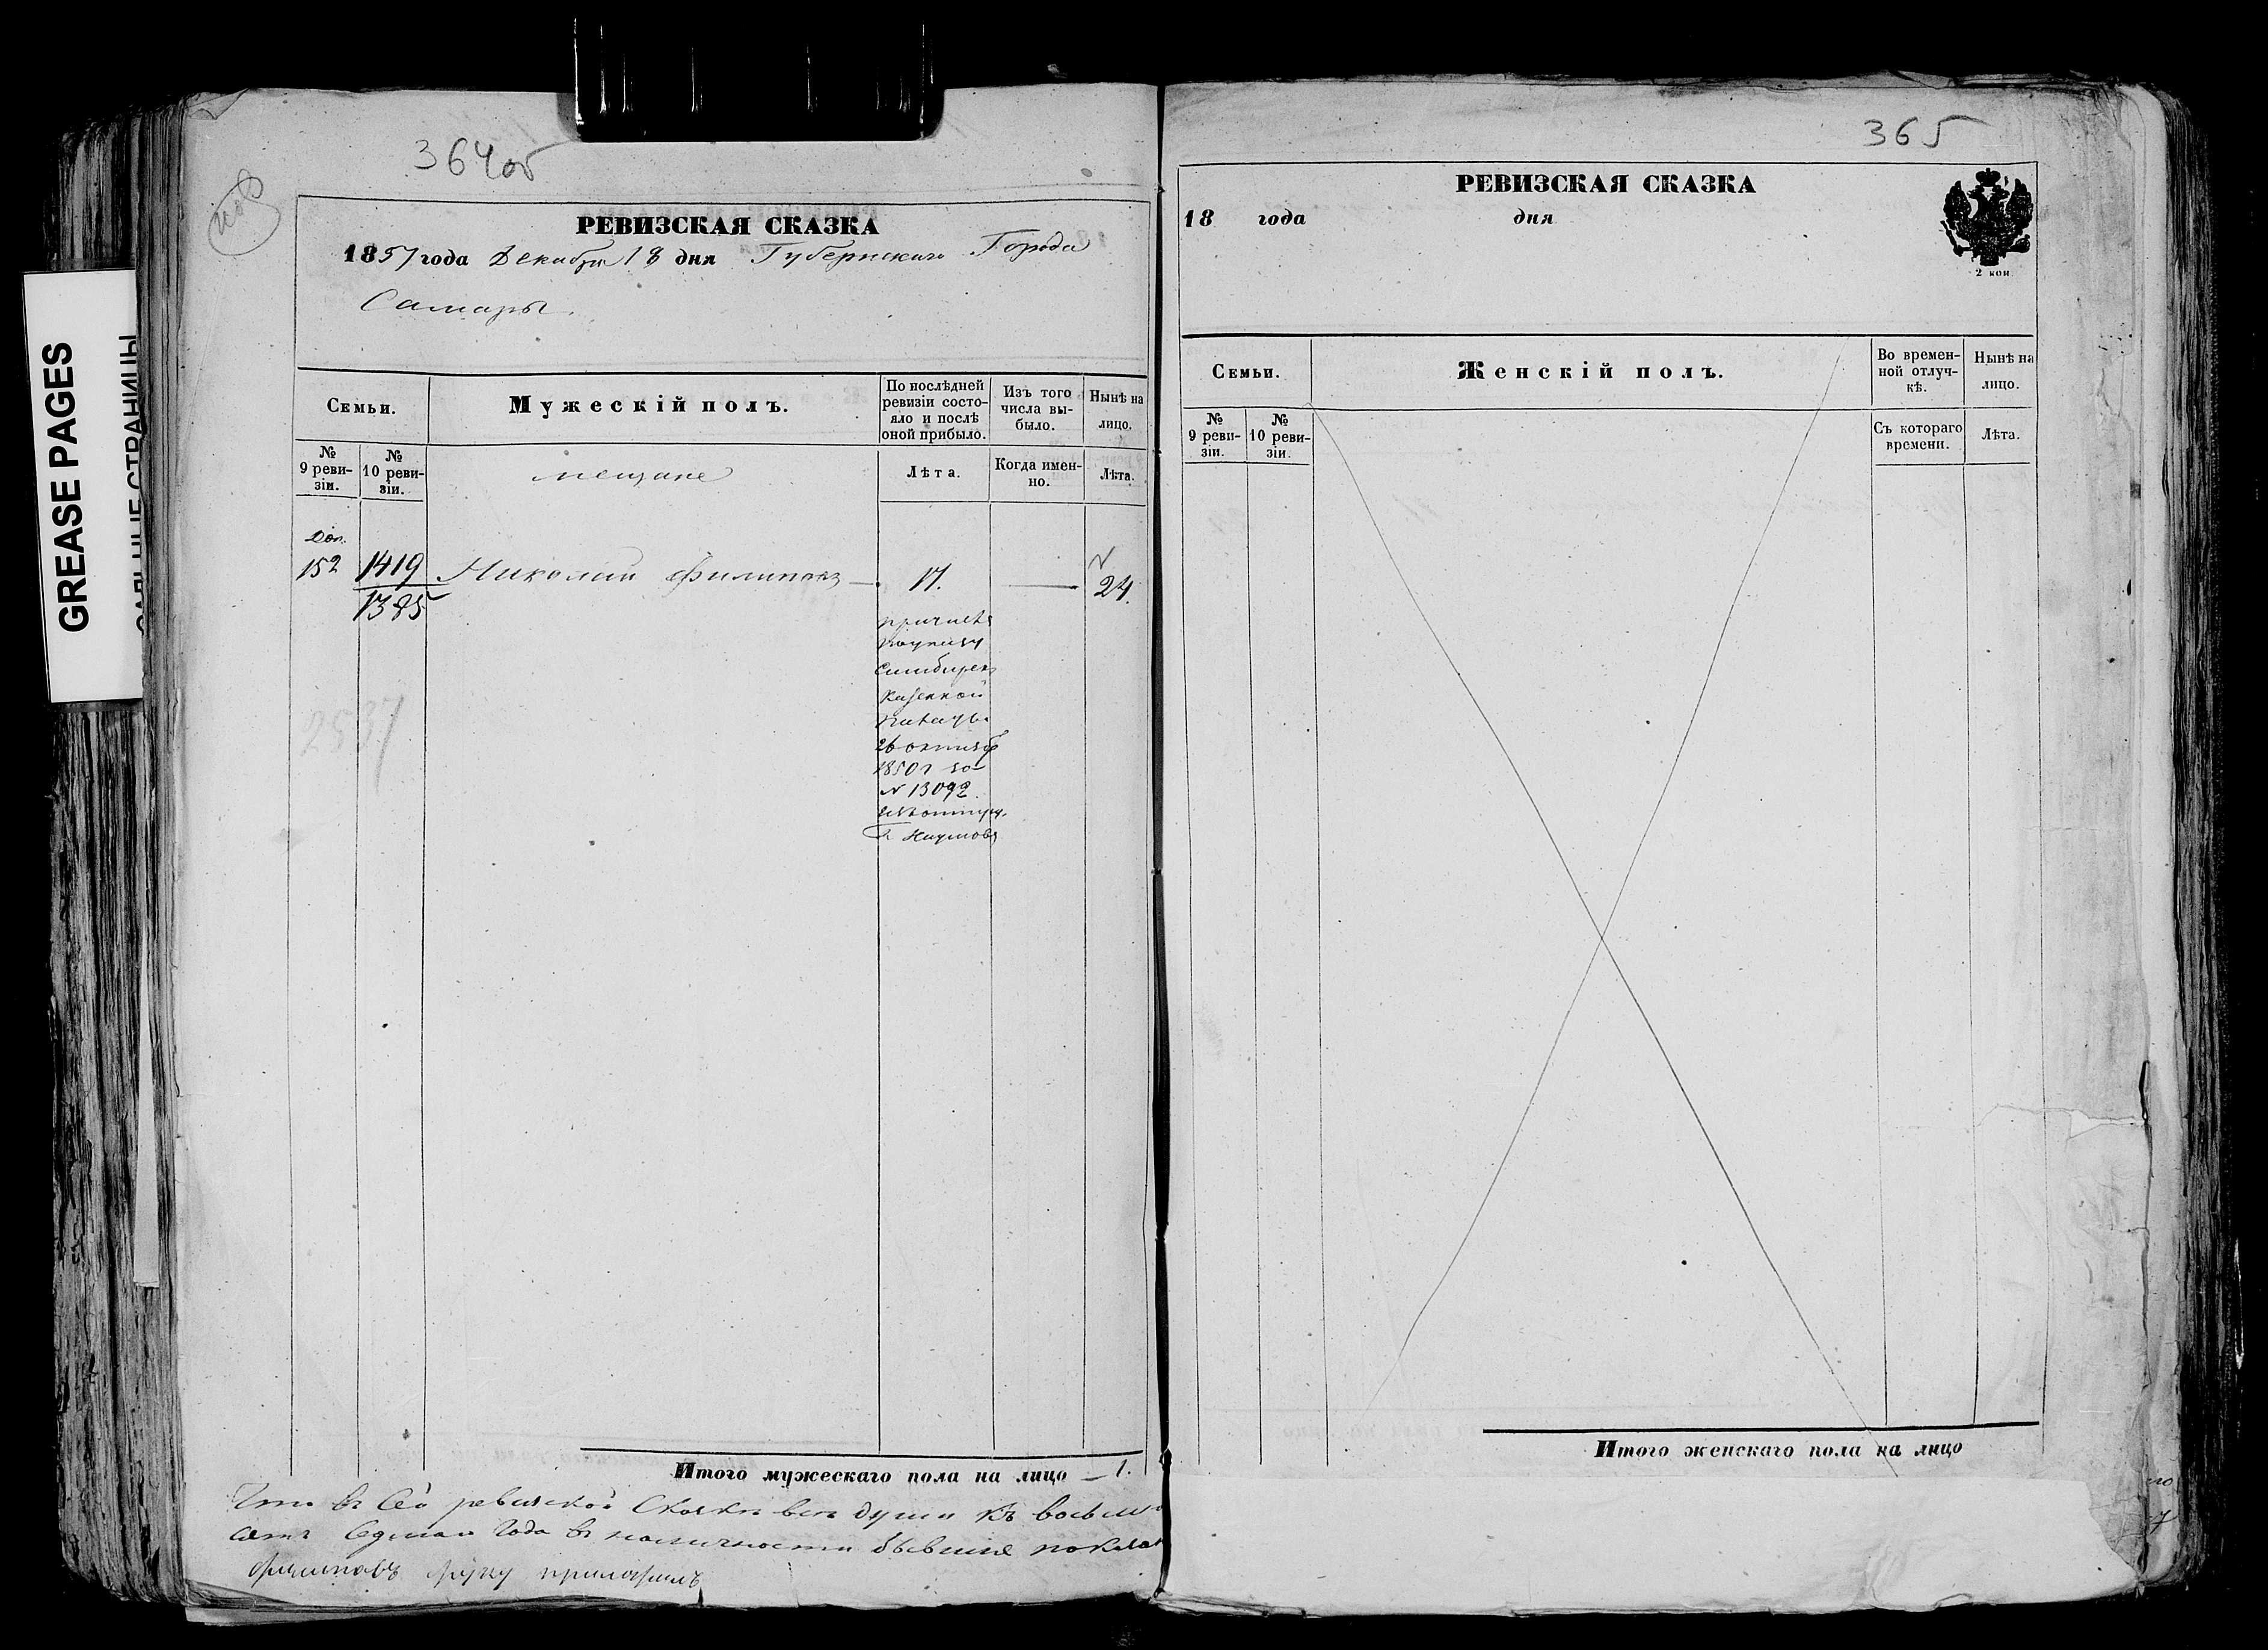 GREASE PAGES
364об
РЕВИЗСКАЯ СКАЗКА
1857 года Декабря 18 дня Губернскаго Города
Самары.
Семьи.
Мужескій полъ.
По послѣдней ревизіи состо-
яло и послѣ
оной прибыло.
Изъ того
числа вы-
было.
Нынѣ на
лицо.
№
9 реви-
зіи.
№
10 реви-
зіи.
мещане
Лѣта.
Когда имен-
но.
Лѣта.
Доп.
152
1419
1385
Николай Филиповъ
17.
24.
причис
по указу
Симбирск
Казенной
Палаты
26 октяб
1850 г за
№ 13092
Наумовъ
2537
Итого мужескаго пола на лицо — 1.
Что в сей ревизской Сказке все души к восьм
Года в наличности бывшие показа
Филиповъ руку приложилъ
365
РЕВИЗСКАЯ СКАЗКА
18 года дня
2 коп.
Семьи.
Женскій полъ.
Во времен-
ной отлуч-
кѣ.
Нынѣ на
лицо.
№
9 реви-
зіи.
№
10 реви-
зіи.
Съ котораго
времени.
Лѣта.
Итого женскаго пола на лицо